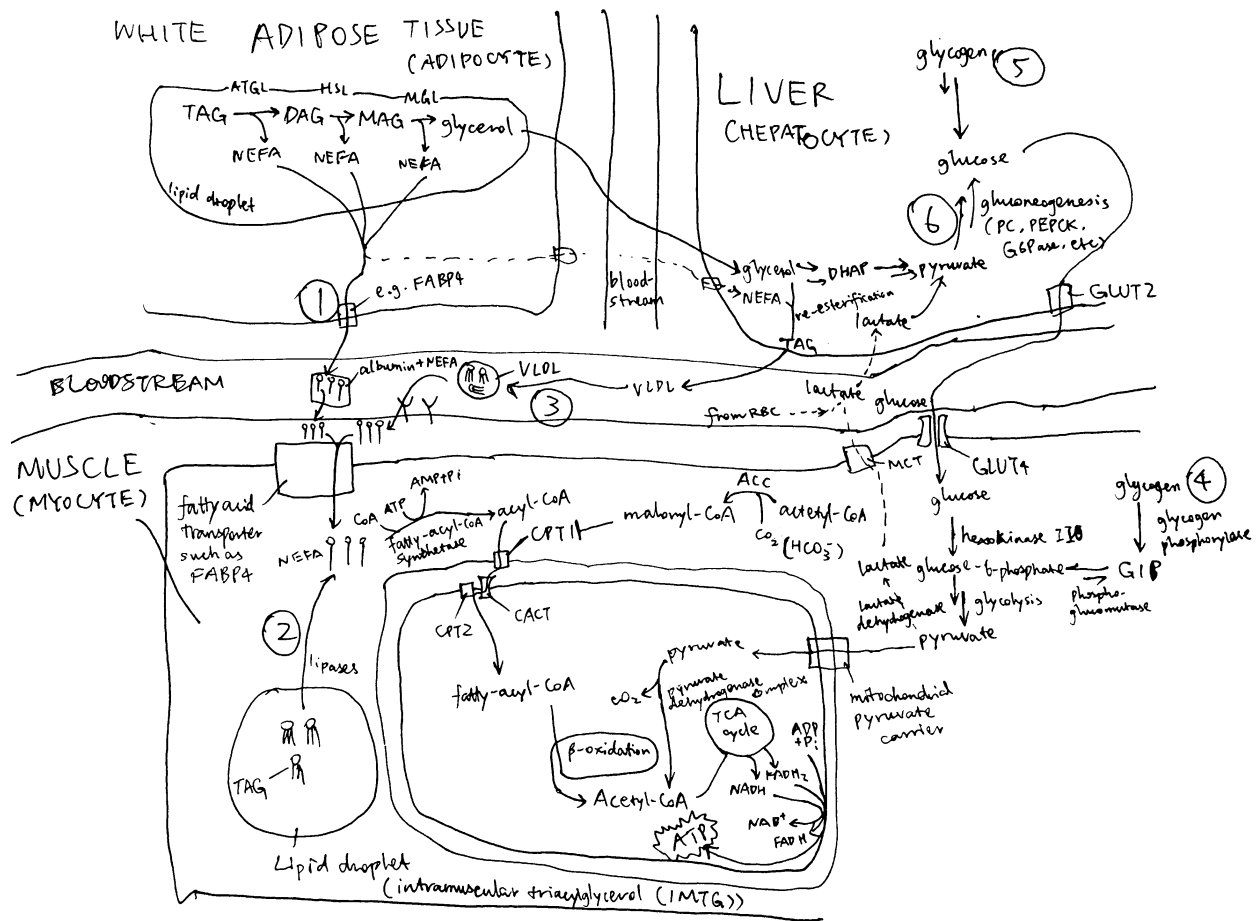 WHITE ADIPOSE TISSUE
(ADIPOCYTE)
ATGL HSL MGL
TAG DAG MAG glycerol
NEFA NEFA NEFA
lipid droplet
1
e.g. FABP4
blood-
stream
LIVER
(HEPATOCYTE)
glycogen 5
glucose
6
gluconeogenesis
(PC, PEPCK,
G6Pase, etc)
glycerol DHAP pyruvate
NEFA
re-esterification
lactate
TAG
GLUT2
BLOODSTREAM
albumin+NEFA
VLDL
3
VLDL
lactate
from RBC
glucose
MCT
GLUT4
MUSCLE
(MYOCYTE)
fatty acid
transporter
such as
FABP4
NEFA
CoA ATP AMP+Pi
fatty-acyl-CoA
synthetase
acyl-CoA
CPT1
malonyl-CoA
ACC
actetyl-CoA
CO2 (HCO3-)
glucose
hexokinase II
glycogen 4
glycogen
phosphorylase
lactate glucose-6-phosphate G1P
phospho-
glucomutase
lactate
dehydrogenase
glycolysis
pyruvate
2
lipases
TAG
Lipid droplet
(intramuscular triacylglycerol (IMTG))
CPT2
CACT
fatty-acyl-CoA
β-oxidation
Acetyl-CoA
pyruvate
CO2
pyruvate
dehydrogenase
complex
TCA
cycle
ADP
+Pi
NADH
FADH2
NAD+
FADH
ATP
mitochondrial
pyruvate
carrier